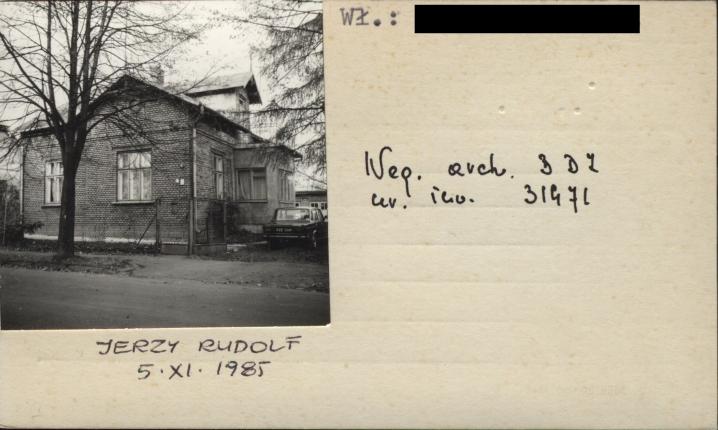 WŁ.:
Neg. arch. BDZ
nr. inw. 31471
JERZY RUDOLF
5.XI.1985